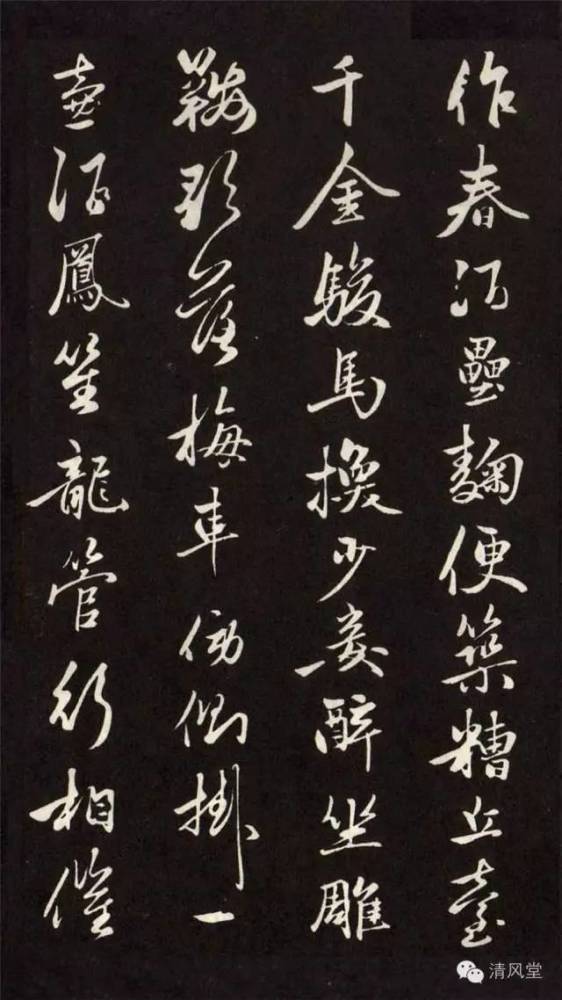 作春酒壘麴便築糟丘臺
千金駿馬換少妾醉坐雕
鞍歌落梅車傍側掛一
壺酒鳳笙龍管行相催
清风堂